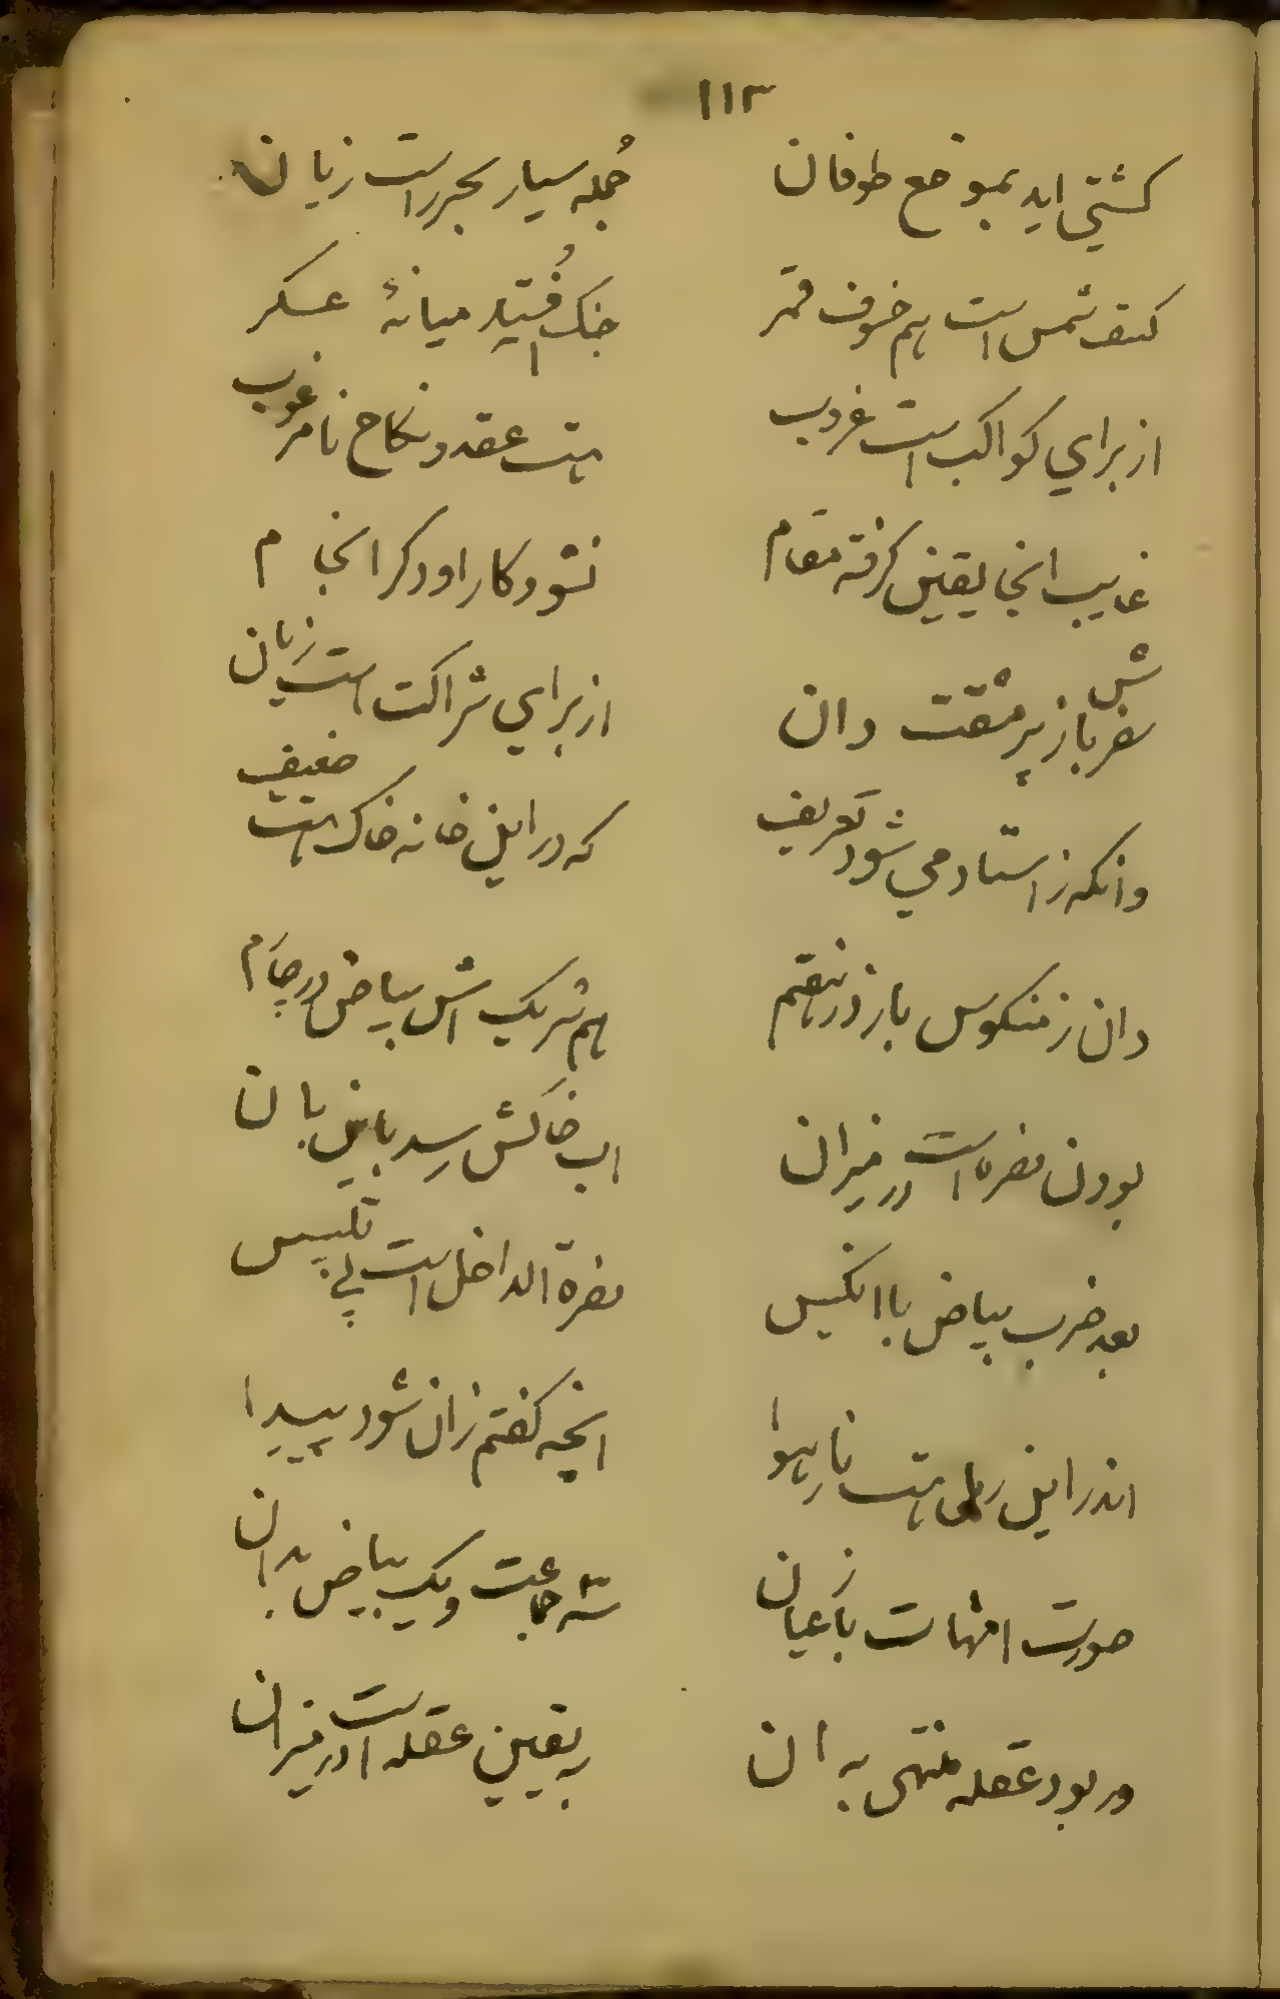 ۱۱۳
کشتی اید بموضع طوفان جمله سیار بحر راست زیان
کسف شمس است هم خسوف قمر جنک افتید میانهٔ عسکر
از برای کواکب است غروب هست عقد و نکاح نامرغوب
غایب انجا یقین کرفته مقام نشود کار او دکر انجام
سفرش باز پر مشقت دان از برای شراکت است زیان
وانکه ز استاد می شود تعریف که در این خانه خاک هست ضعیف
دان ز منکوس باز در هفتم هم شریک اش بیاض در چارم
بودن نصره است در میزان اب خاکش رسد باین بان
بعد ضرب بیاض با انکیس نصرة الداخل است بی تلبیس
اندر این رمل هست نار هوا انچه کفتم زان شود پیدا
صورت امهات باز عیان سه جماعت و یک بیاض بدان
ور بود عقله منتهی به ان به یقین عقله است در میزان